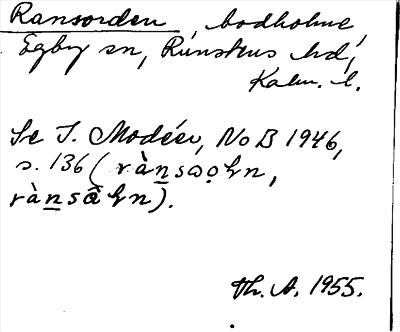 Ransorden, bodholme,
Egby sn, Runstens hd,
Kalm. l.
Se I. Modéer, NoB 1946,
s. 136 (
th. A. 1955.